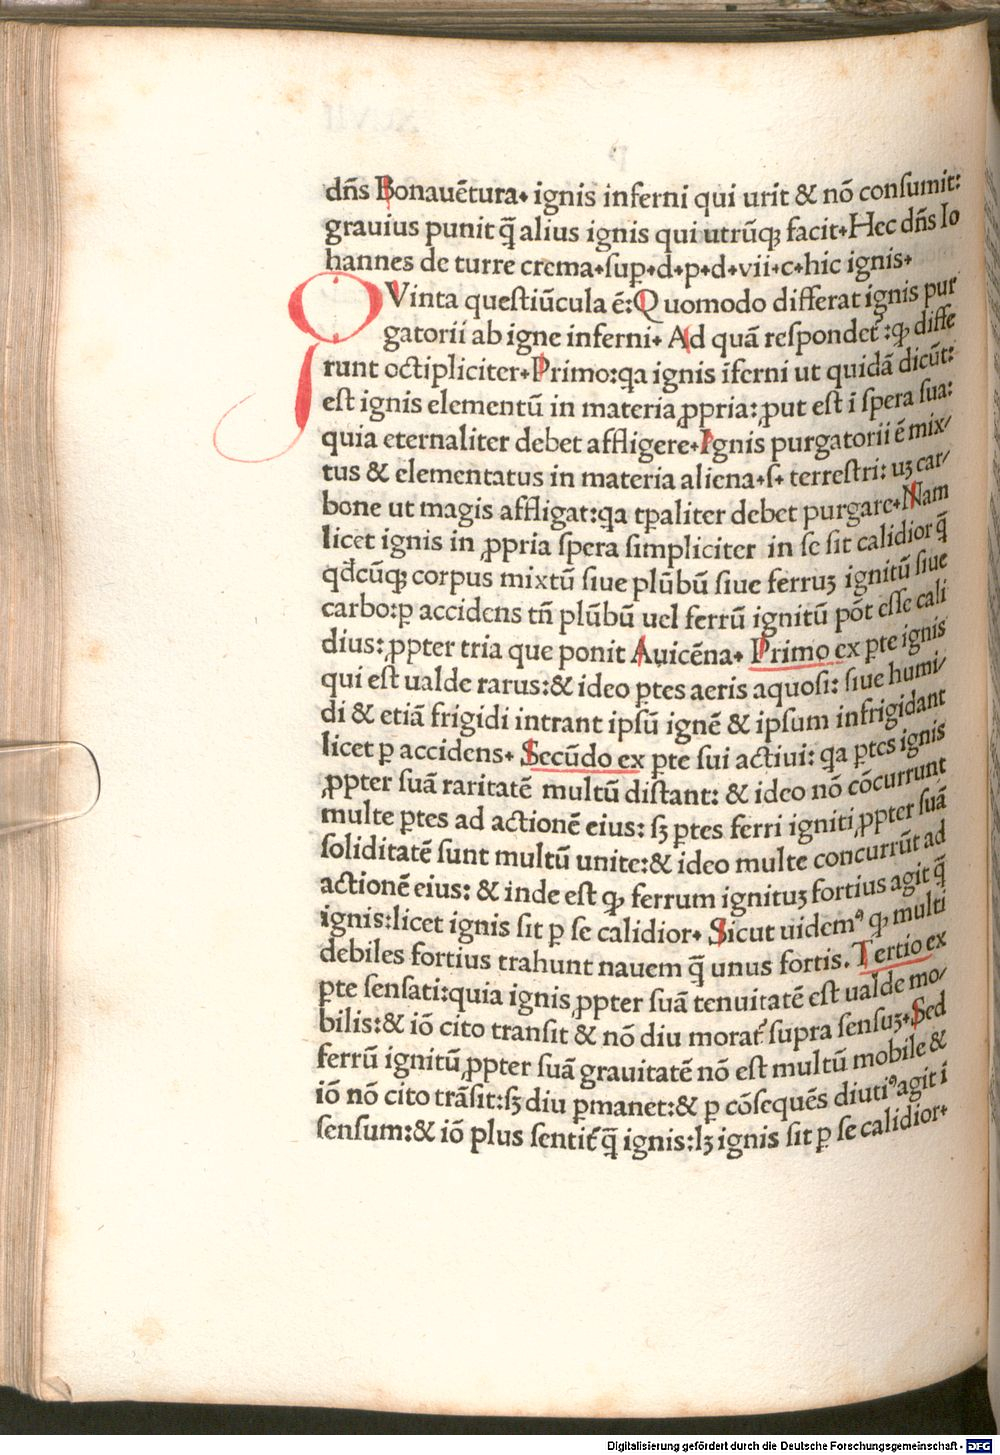 dn̄s Bonauētura. ignis inferni qui urit & nō conſumit:
grauius punit q̄ alius ignis qui utrūqꝫ facit. Hec dn̄s Io
hannes de turre crema. ſup. d. p. d. vii. c. hic ignis.
QVinta queſtiūcula ē: Quomodo differat ignis pur
gatorii ab igne inferni. Ad quā reſpondet᷑: ꝙ diffe
runt octipliciter. Primo: qa ignis īferni ut quidā dicūt:
eſt ignis elementū in materia ꝓpria: ꝓut eſt ī ſpera ſua:
quia eternaliter debet affligere. Ignis purgatorii ē mix/
tus & elementatus in materia aliena. ſ. terreſtri: uꝫ car/
bone ut magis affligat: qa tꝑaliter debet purgare. Nam
licet ignis in ꝓpria ſpera ſimpliciter in ſe ſit calidior q̄
qđcūqꝫ corpus mixtū ſiue plūbū ſiue ferruꝫ ignitū ſiue
carbo: ꝑ accidens tn̄ plūbū uel ferrū ignitū pōt eſſe cali
dius: ꝓpter tria que ponit Auicēna. Primo ex ꝑte ignis
qui eſt ualde rarus: & ideo ꝑtes aeris aquoſi: ſiue humi/
di & etiā frigidi intrant ipſū ignē & ipſum infrigidant
licet ꝑ accidens. Secūdo ex ꝑte ſui actiui: qa ꝑtes ignis
ꝓpter ſuā raritatē multū diſtant: & ideo nō cōcurrunt
multe ꝑtes ad actionē eius: ſꝫ ꝑtes ferri igniti ꝓpter ſuā
ſoliditatē ſunt multū unite: & ideo multe concurrūt ad
actionē eius: & inde eſt ꝙ ferrum ignituꝫ fortius agit q̄
ignis: licet ignis ſit ꝑ ſe calidior. Sicut uidemꝰ ꝙ multi
debiles fortius trahunt nauem q̄ unus fortis. Tertio ex
ꝑte ſenſati: quia ignis ꝓpter ſuā tenuitatē eſt ualde mo/
bilis: & iō cito tranſit & nō diu morat᷑ ſupra ſenſuꝫ. Sed
ferrū ignitū ꝓpter ſuā grauitatē nō eſt multū mobile &
iō nō cito trāſit: ſꝫ diu ꝑmanet: & ꝑ cōſequēs diutiꝰ agit ī
ſenſum: & iō plus ſentit᷑ q̄ ignis: lꝫ ignis ſit ꝑ ſe calidior.
Digitalisierung gefördert durch die Deutsche Forschungsgemeinschaft - DFG